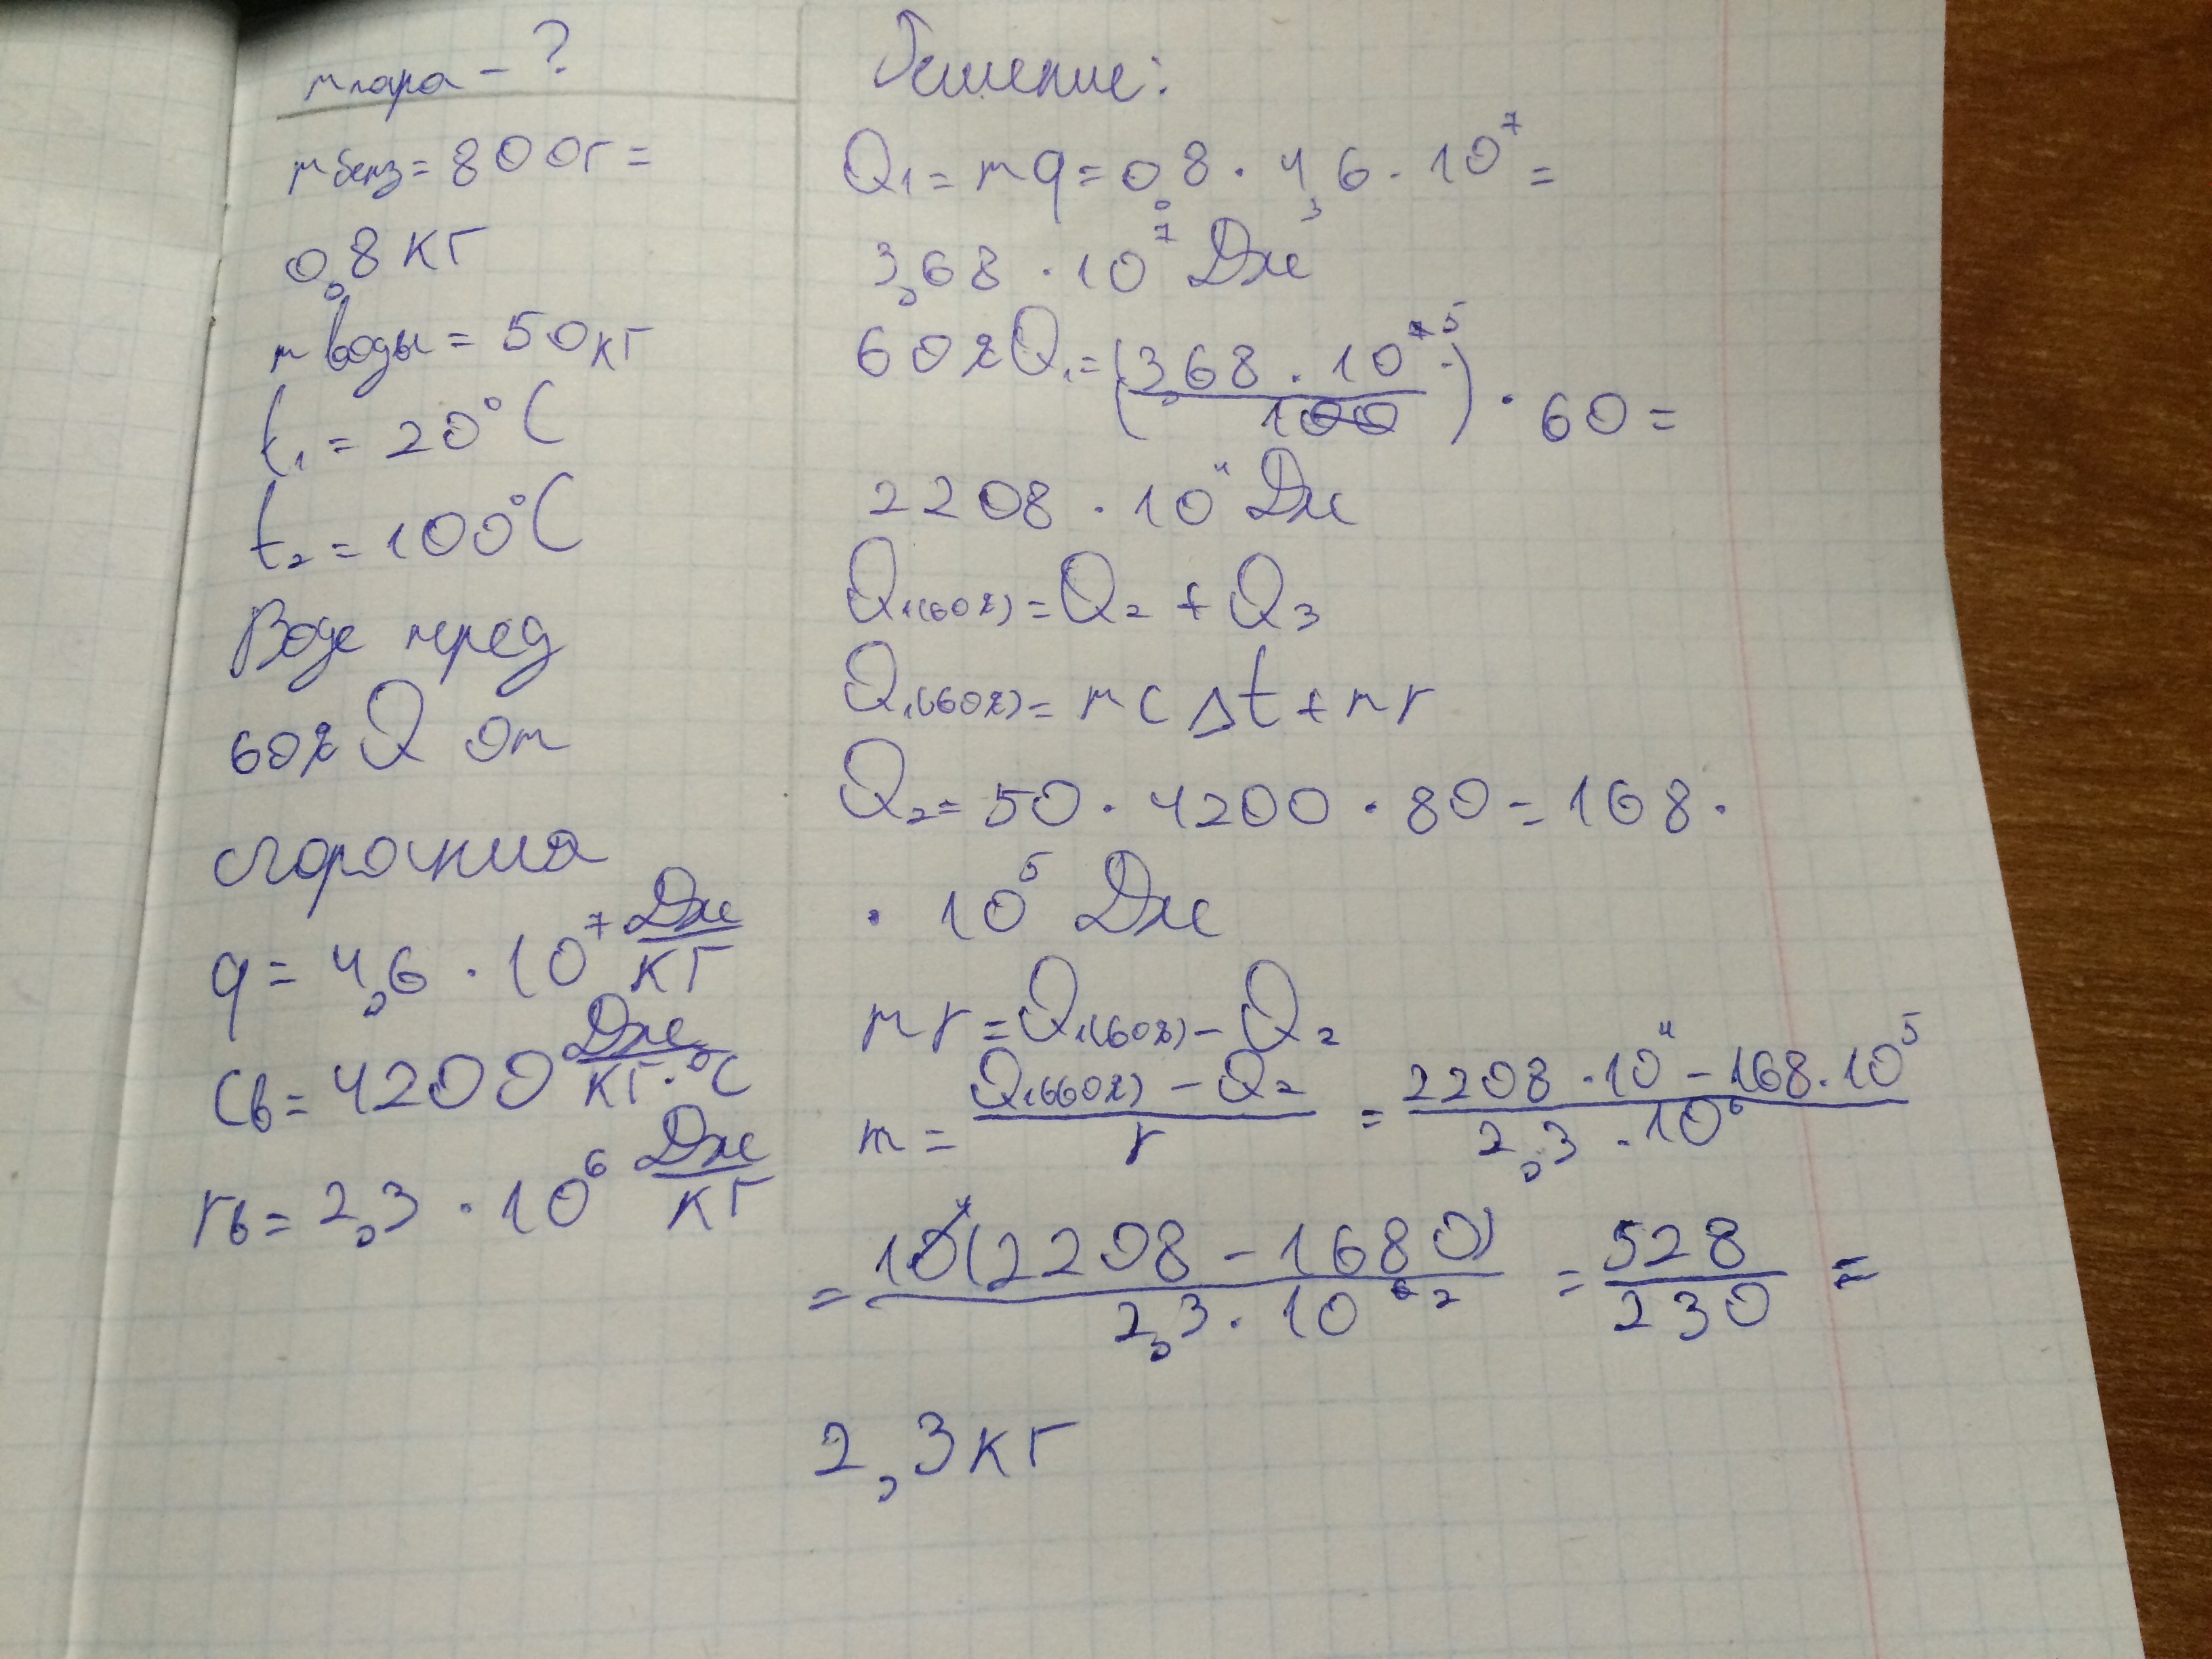 m пара - ?
m бенз = 800г =
0,8 кг
m воды = 50 кг
t₁ = 20°C
t₂ = 100°C
Воде перед
60% Q от
сгорания
q = 4,6 · 10⁷ Дж/кг
Cв = 4200 Дж/кг·°C
rв = 2,3 · 10⁶ Дж/кг
Решение:
Q₁ = mq = 0,8 · 4,6 · 10⁷ =
3,68 · 10⁷ Дж
60% Q₁ = (3,68 · 10⁵ / 100) · 60 =
2208 · 10⁴ Дж
Q₁(60%) = Q₂ + Q₃
Q₁(60%) = mcΔt + mr
Q₂ = 50 · 4200 · 80 = 168 ·
· 10⁵ Дж
mr = Q₁(60%) - Q₂
m = (Q₁(60%) - Q₂) / r = (2208 · 10⁴ - 168 · 10⁵) / (2,3 · 10⁶)
= 10⁴(2208 - 1680) / (2,3 · 10²) = 528/230 =
2,3 кг